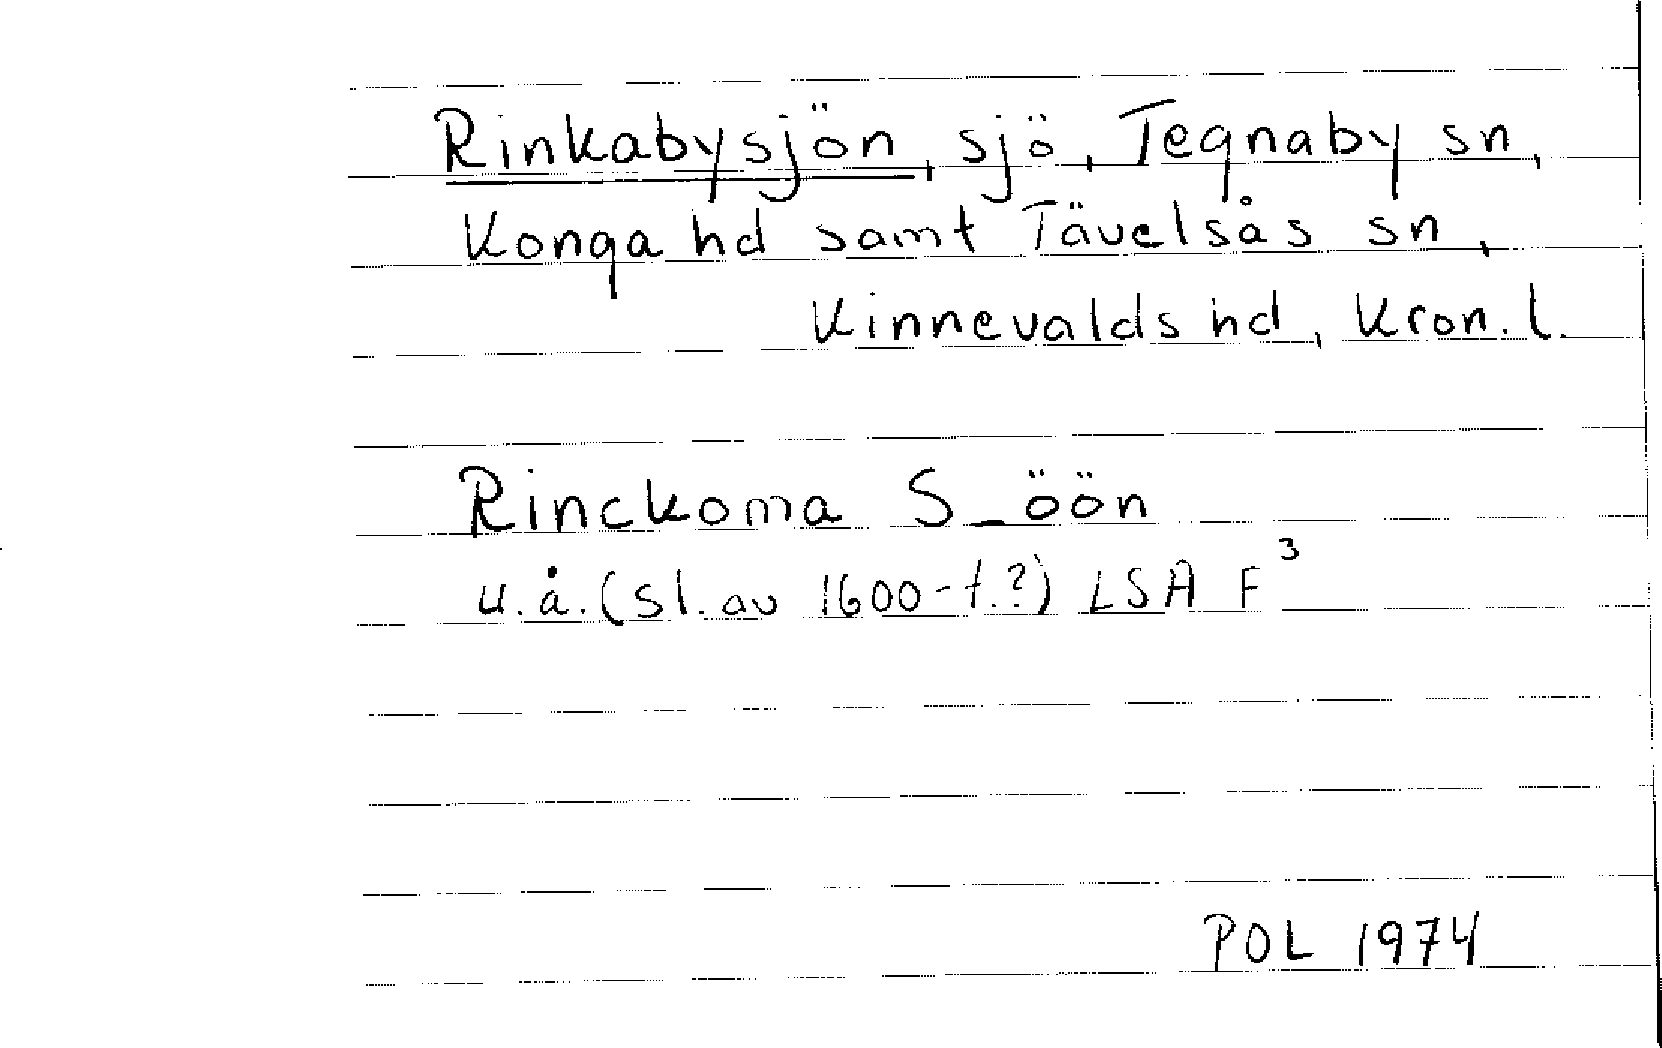 Rinkabysjön, sjö, Tegnaby sn,
Konga hd samt Tävelsås sn,
Kinnevalds hd, Kron. l.
Rinckoma S_öön
u.å. (sl. av 1600-t.?) LSA F³
POL 1974